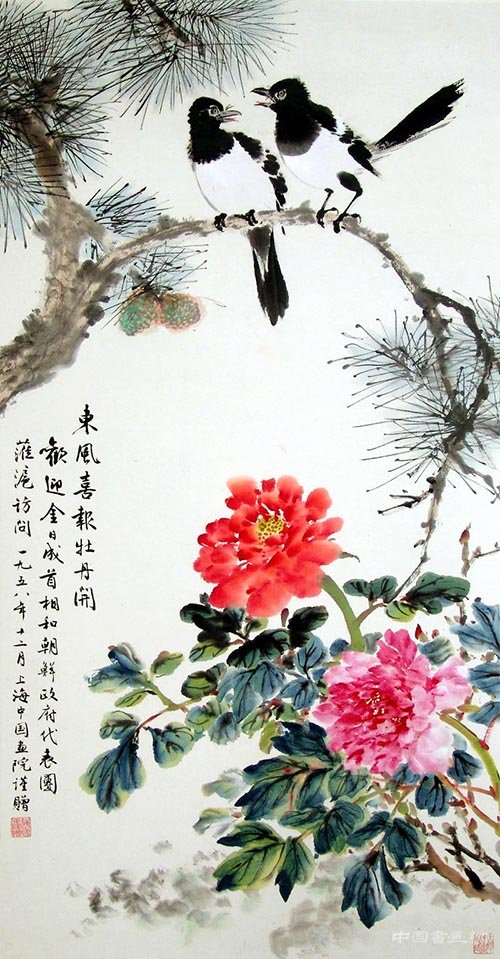 東風喜報牡丹開
歡迎金日成首相和朝鮮政府代表團
蒞滬訪问 一九五八年十二月上海中国画院谨贈
中国書画網